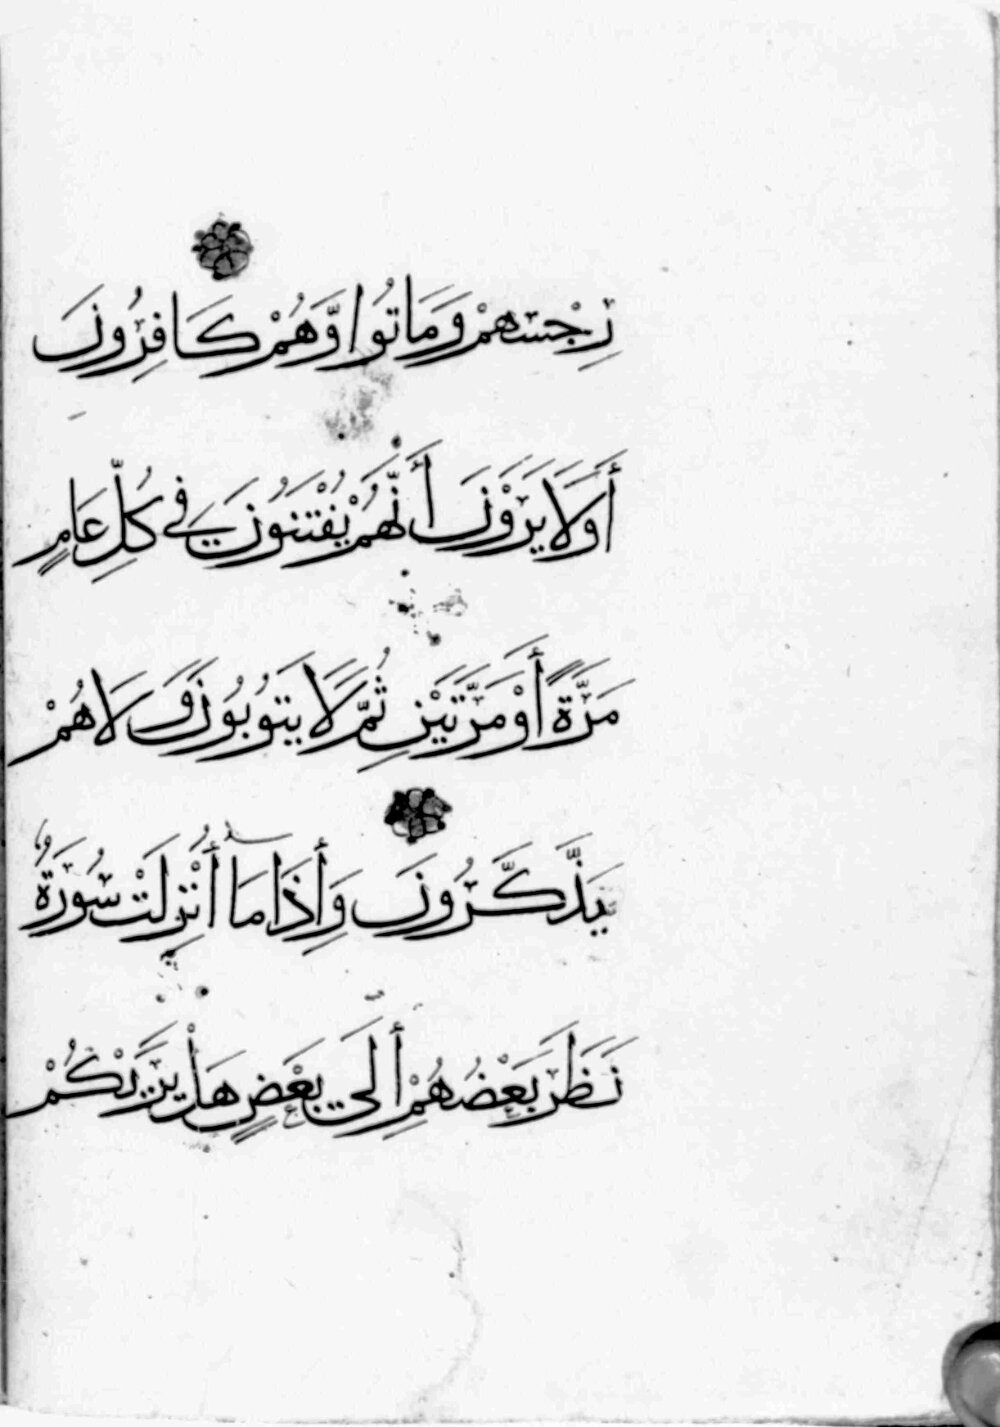 رِجْسِهِمْ وَمَاتُوا وَّهُمْ كَافِرُونَ
أَوَلَا يَرَوْنَ أَنَّهُمْ يُفْتَنُونَ فِي كُلِّ عَامٍ
مَرَّةً أَوْ مَرَّتَيْنِ ثُمَّ لَا يَتُوبُونَ وَلَا هُمْ
يَذَّكَّرُونَ وَإِذَا مَا أُنْزِلَتْ سُورَةٌ
نَظَرَ بَعْضُهُمْ إِلَى بَعْضٍ هَلْ يَرَيكُمْ